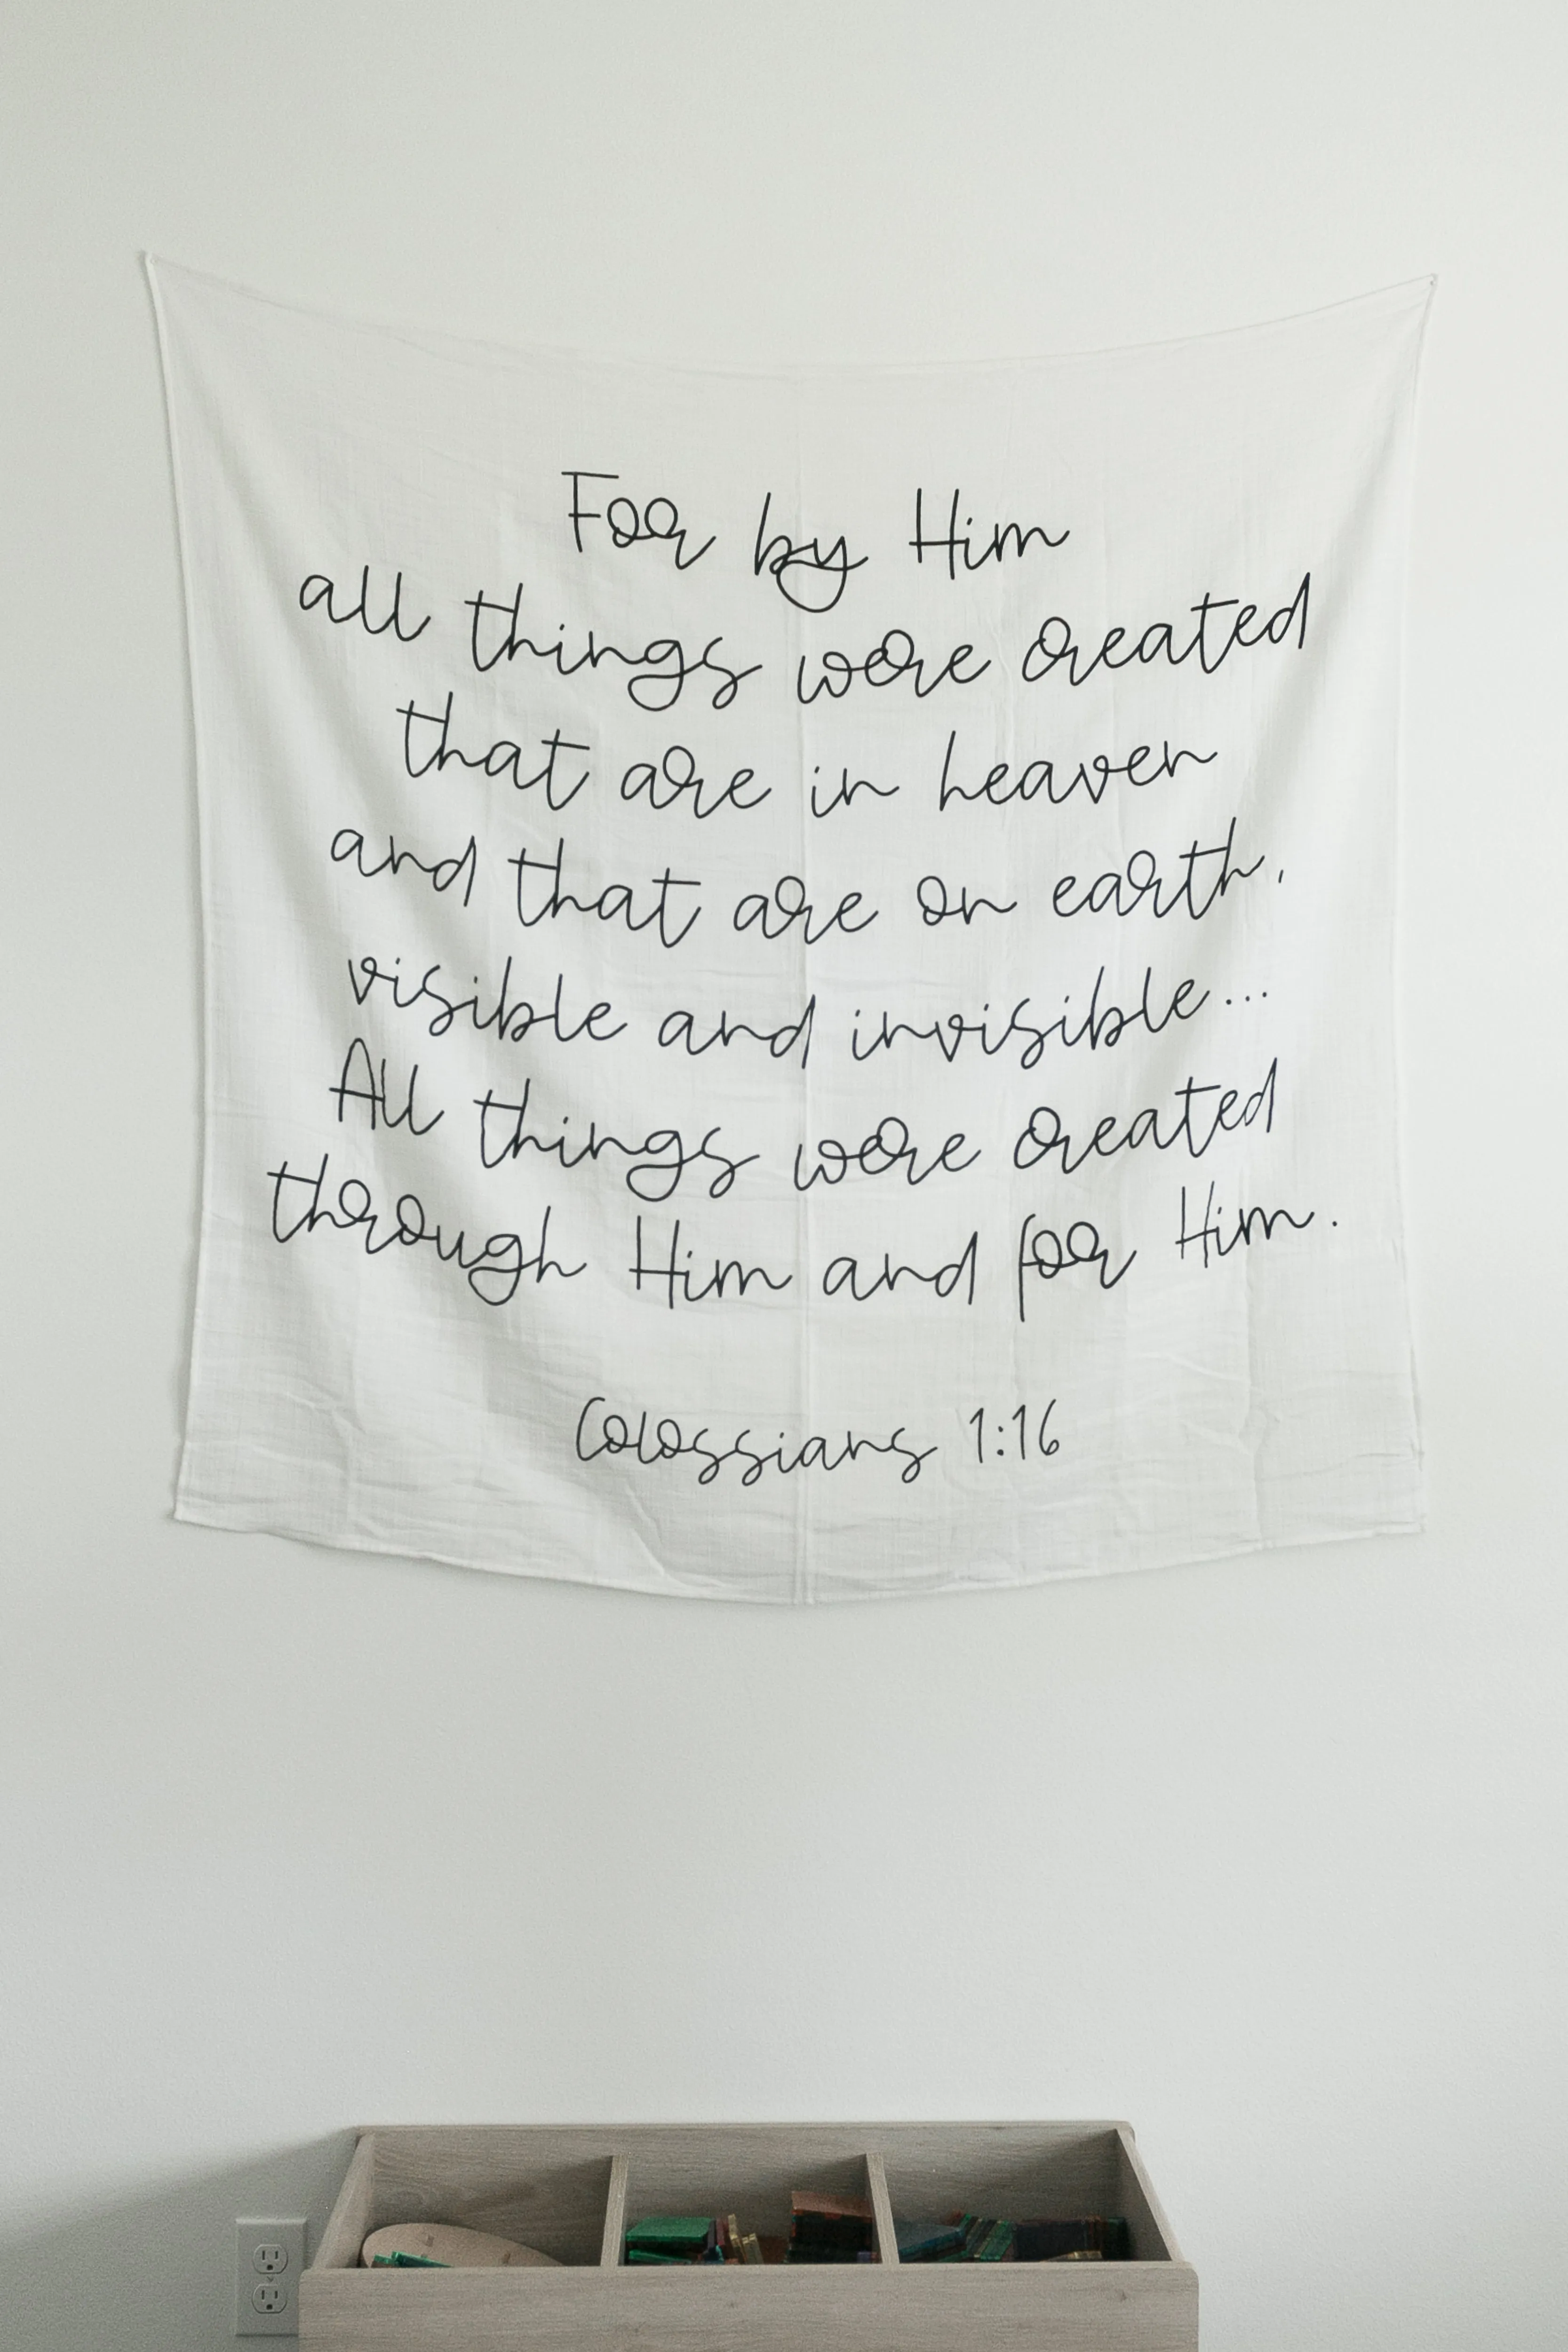 For by Him
all things were created
that are in heaven
and that are on earth,
visible and invisible...
All things were created
through Him and for Him.
Colossians 1:16